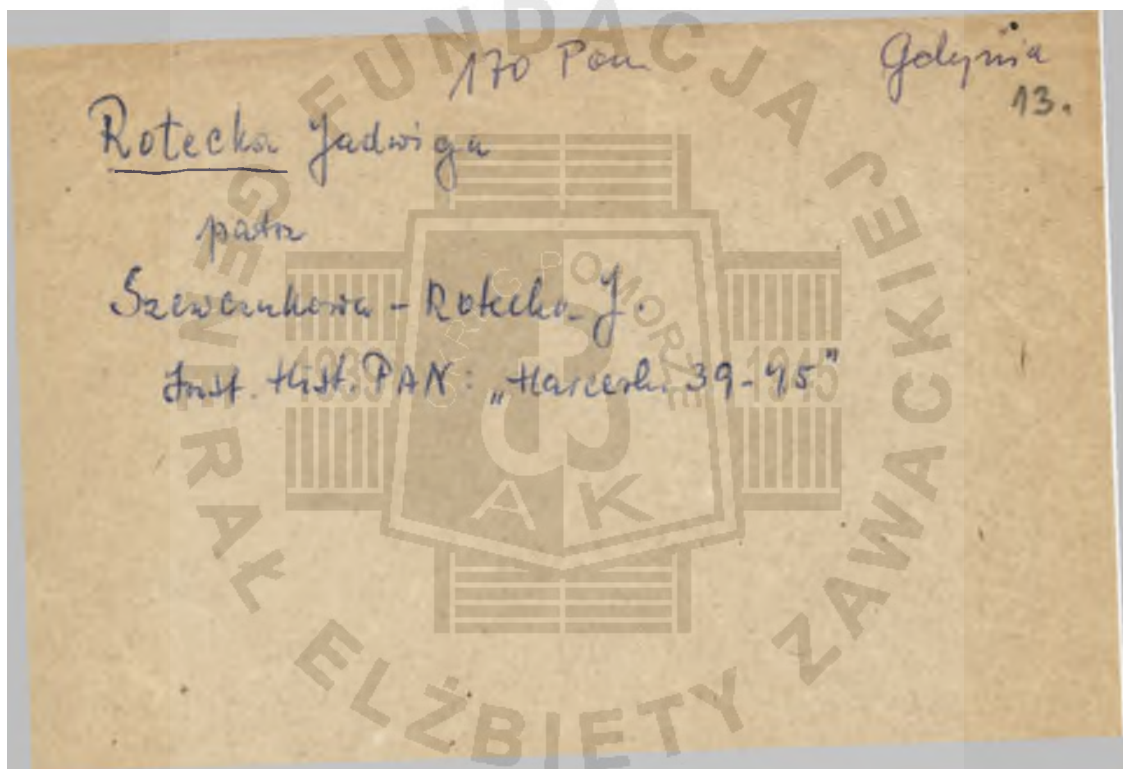 170 Pom Gdynia
13.
Rotecka Jadwiga
patrz
Szewczukowa - Rotecka J.
Inst. Hist. PAN: „Harcersk. 39-45”
FUNDACJA JEJ
GENERAŁ ELŻBIETY ZAWACKIEJ
OKRĘG POMORZE
1939 1945
AK